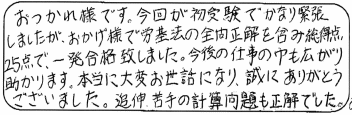 おつかれ様です。今回が初受験でかなり緊張
しましたが、おかげ様で労基法の全肉正解を含み総得点
25点で、一発合格致しました。今後の仕事の巾も広がり
助かります。本当に大変お世話になり、誠にありがとう
ございました。追伸 苦手の計算問題も正解でした。